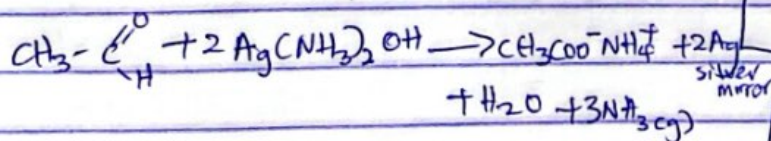 O
CH3-C + 2 Ag(NH3)2 OH → CH3COO⁻NH4⁺ + 2Ag
H
silver
mirror
+ H2O + 3NH3(g)